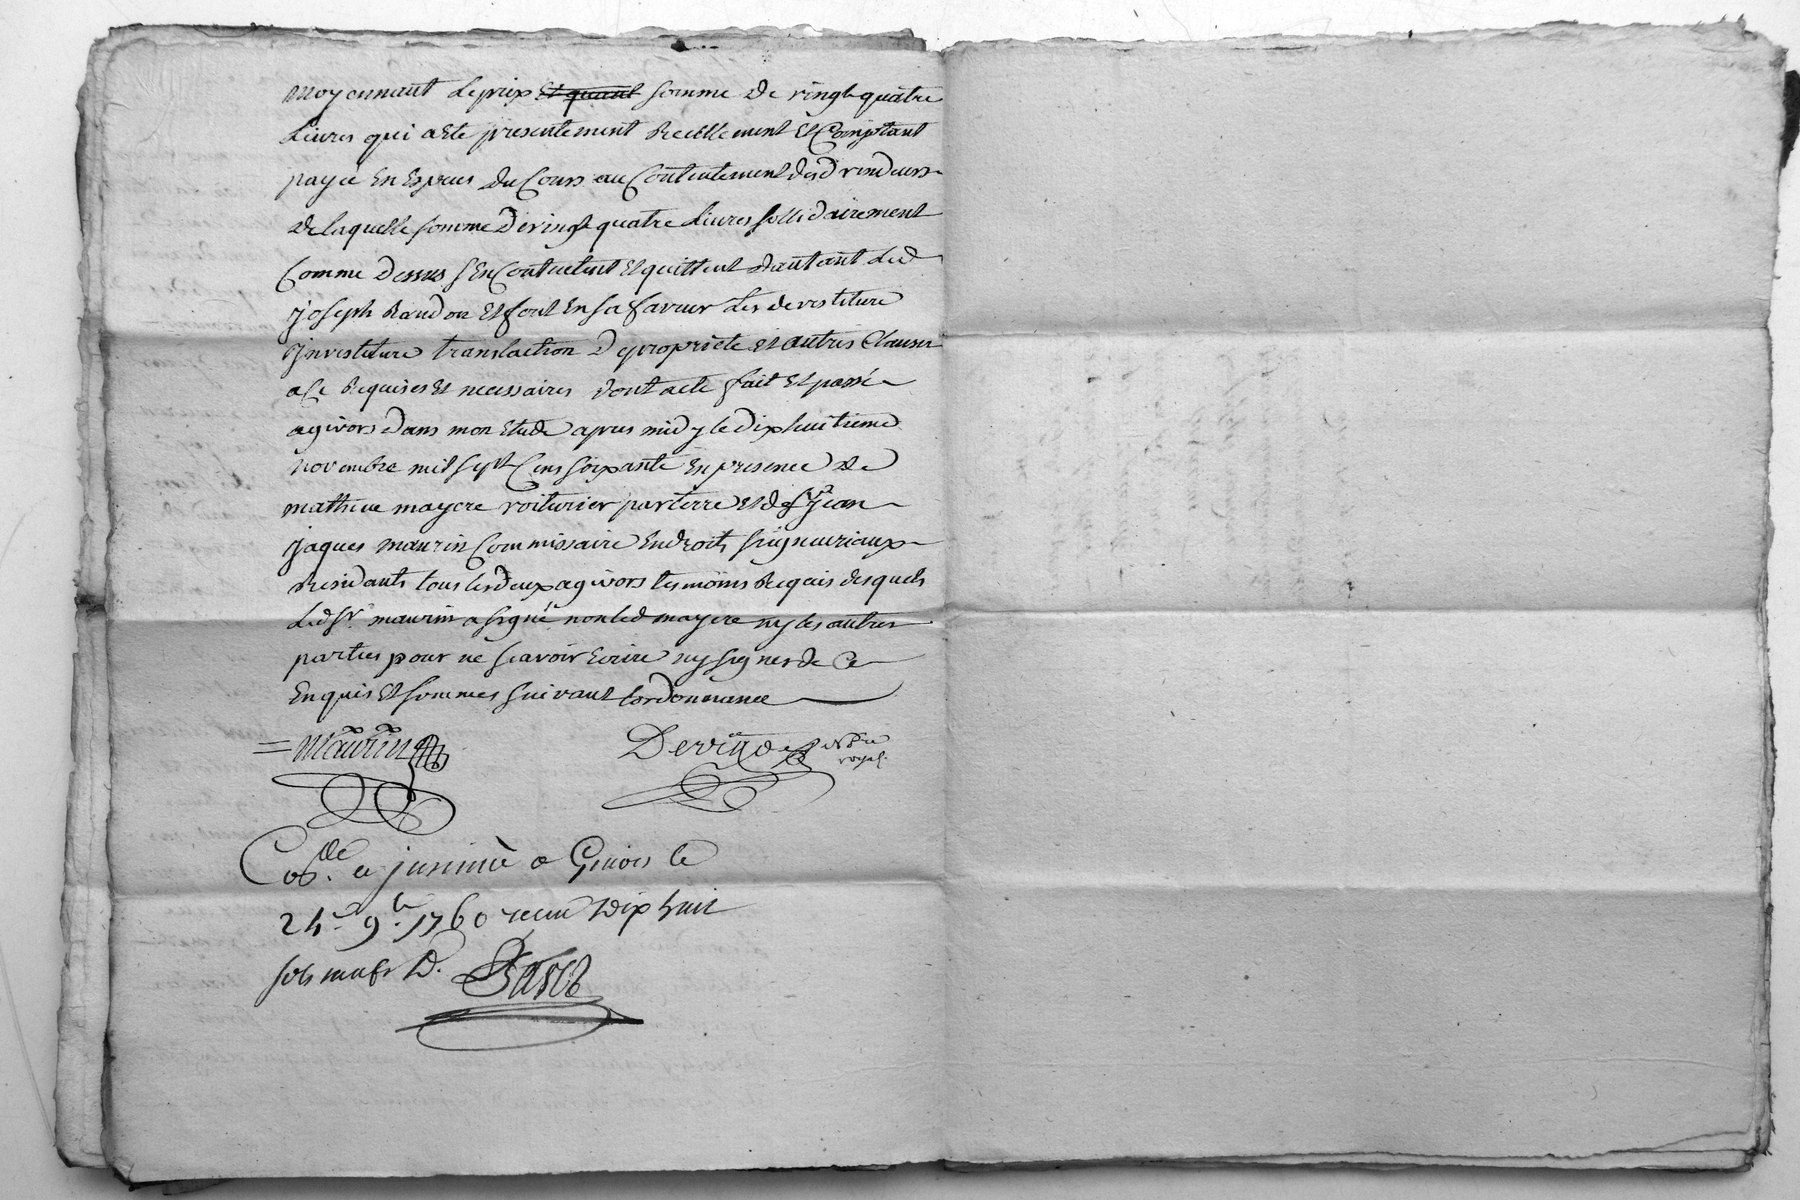 moyennant le prix et quant somme de vingt quatre
Livres qui a ete presentement Reellement et Comptant
payée En Espices du Cours au Contentement desd vendeurs
de laquelle somme de vingt quatre Livres sollidairement
Comme dessus s'En Contentent et quittent d'autant Led
joseph Randon Et font En sa faveur Les devestiture
jnvestiture translaction de proprieté et autres Clauses
a Ce Requises Et necessaires dont acte fait Et passé
a givors dans mon Etude apres midy le dix huitieme
novembre mil sept Cens soixante En presence de
mathieu mayere voiturier par terre et de sr jean
jaques maurin Commissaire En droits seigneuriaux
Residants tous les deux a givors temoins Requis desquels
Led Sr. maurin a signé non led mayere ny les autres
parties pour ne scavoir Ecrire ny signer de Ce
Enquis Et sommes suivant lordonnance
= Maurin
Devixxxx Nore
royal.
Coslle. et jnsinué a Givors le
24e 9bre. 1760 recu dix huit
sols neuf d.